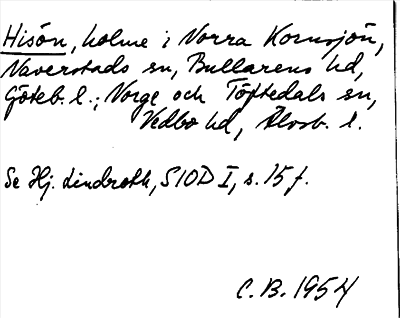 Hisön, holme i Norra Kornsjön,
Naverstads sn, Bullarens hd,
Göteb. l.; Norge och Töftedals sn,
Vedbo hd, Älvsb. l.
Se Hj. Lindroth, SIOD I, s. 15 f.
C. B. 1954